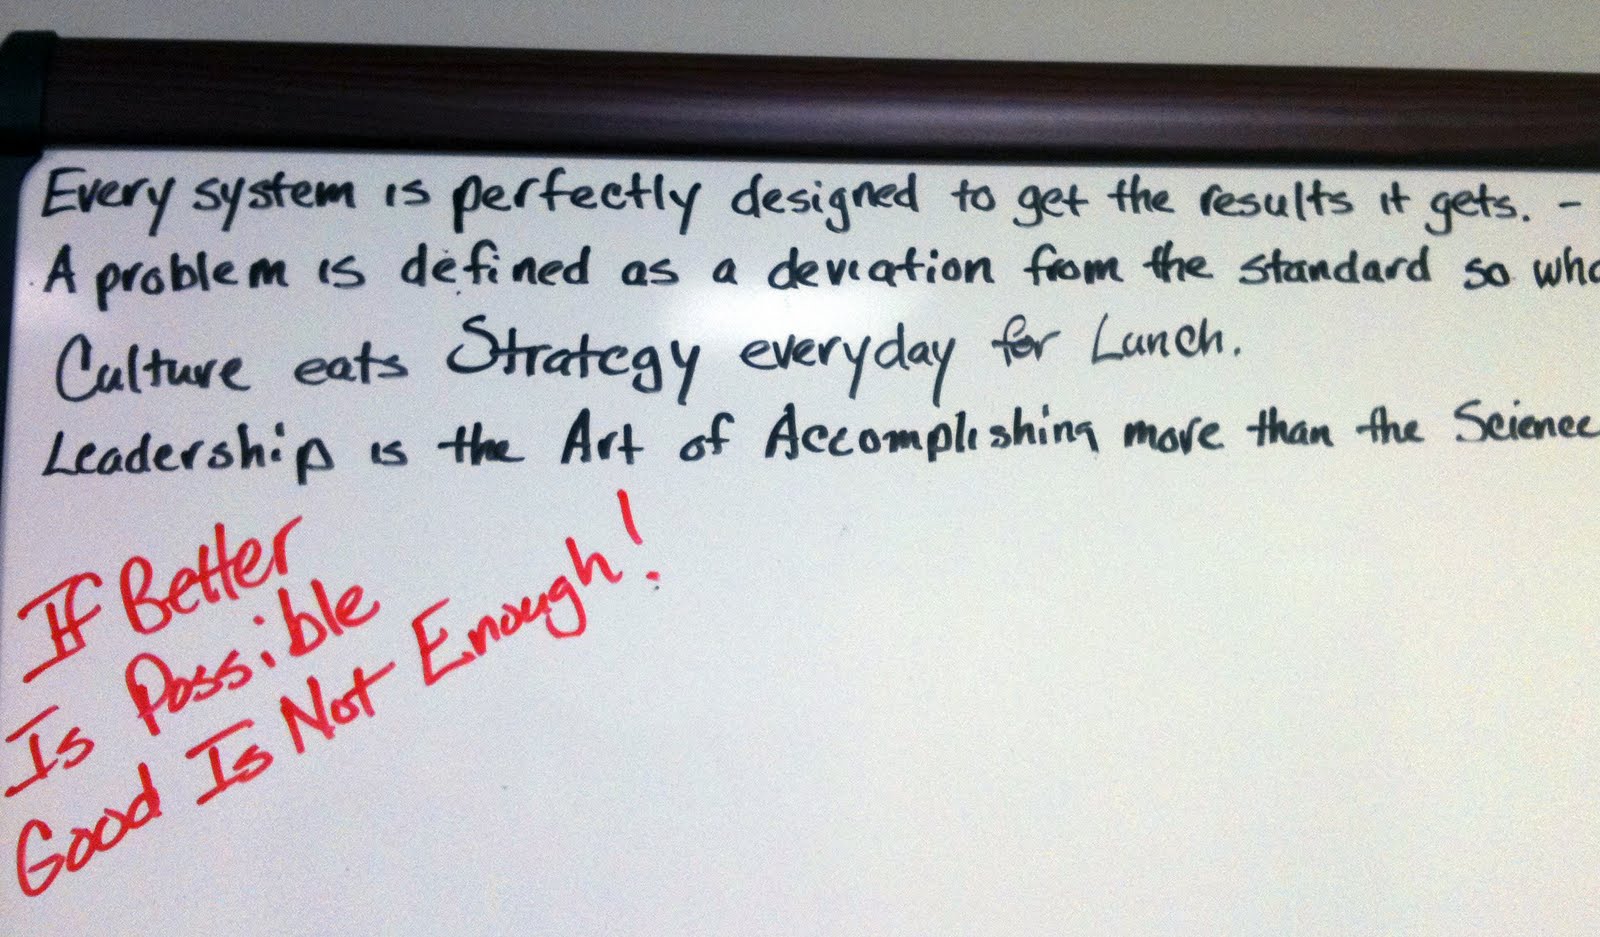 Every system is perfectly designed to get the results it gets. -
A problem is defined as a deviation from the standard so
Culture eats Strategy everyday for Lunch.
Leadership is the Art of Accomplishing more than the Science
If Better
Is Possible
Good Is Not Enough!